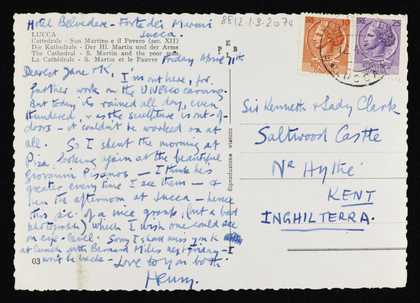 Hotel Belvedere - Forte dei Marmi
Lucca.
8812.1.3.2074
LUCCA
Cattedrale - San Martino e il Povero (sec. XII)
Die Kathedrale - Der Hl. Martin und der Arme
The Cathedral - S. Martin and the poor man
La Cathédrale - S. Martin et le Pauvre
Friday
Dearest Jane & K, I'm out here, for
further work on the UNESCO carving.
But today it's rained all day, even
thundered, & as the sculpture is out-of-
doors - it couldn't be worked on at
all. So I spent the morning at
Pisa, looking again at the beautiful
Giovanni Pisanos - I think he's
greater every time I see them - &
then the afternoon at Lucca - hence
this p.c. of a nice group (but a bad
photograph) which I wish one could see
on eye-level. Sorry I shall miss you
at lunch with Bernard Miles next - I
won't be back - Love to you both.
Henry.
03
PER
Riproduzione vietata
LUCCA
Sir Kenneth & Lady Clark
Saltwood Castle
Nr Hythe
KENT
INGHILTERRA.